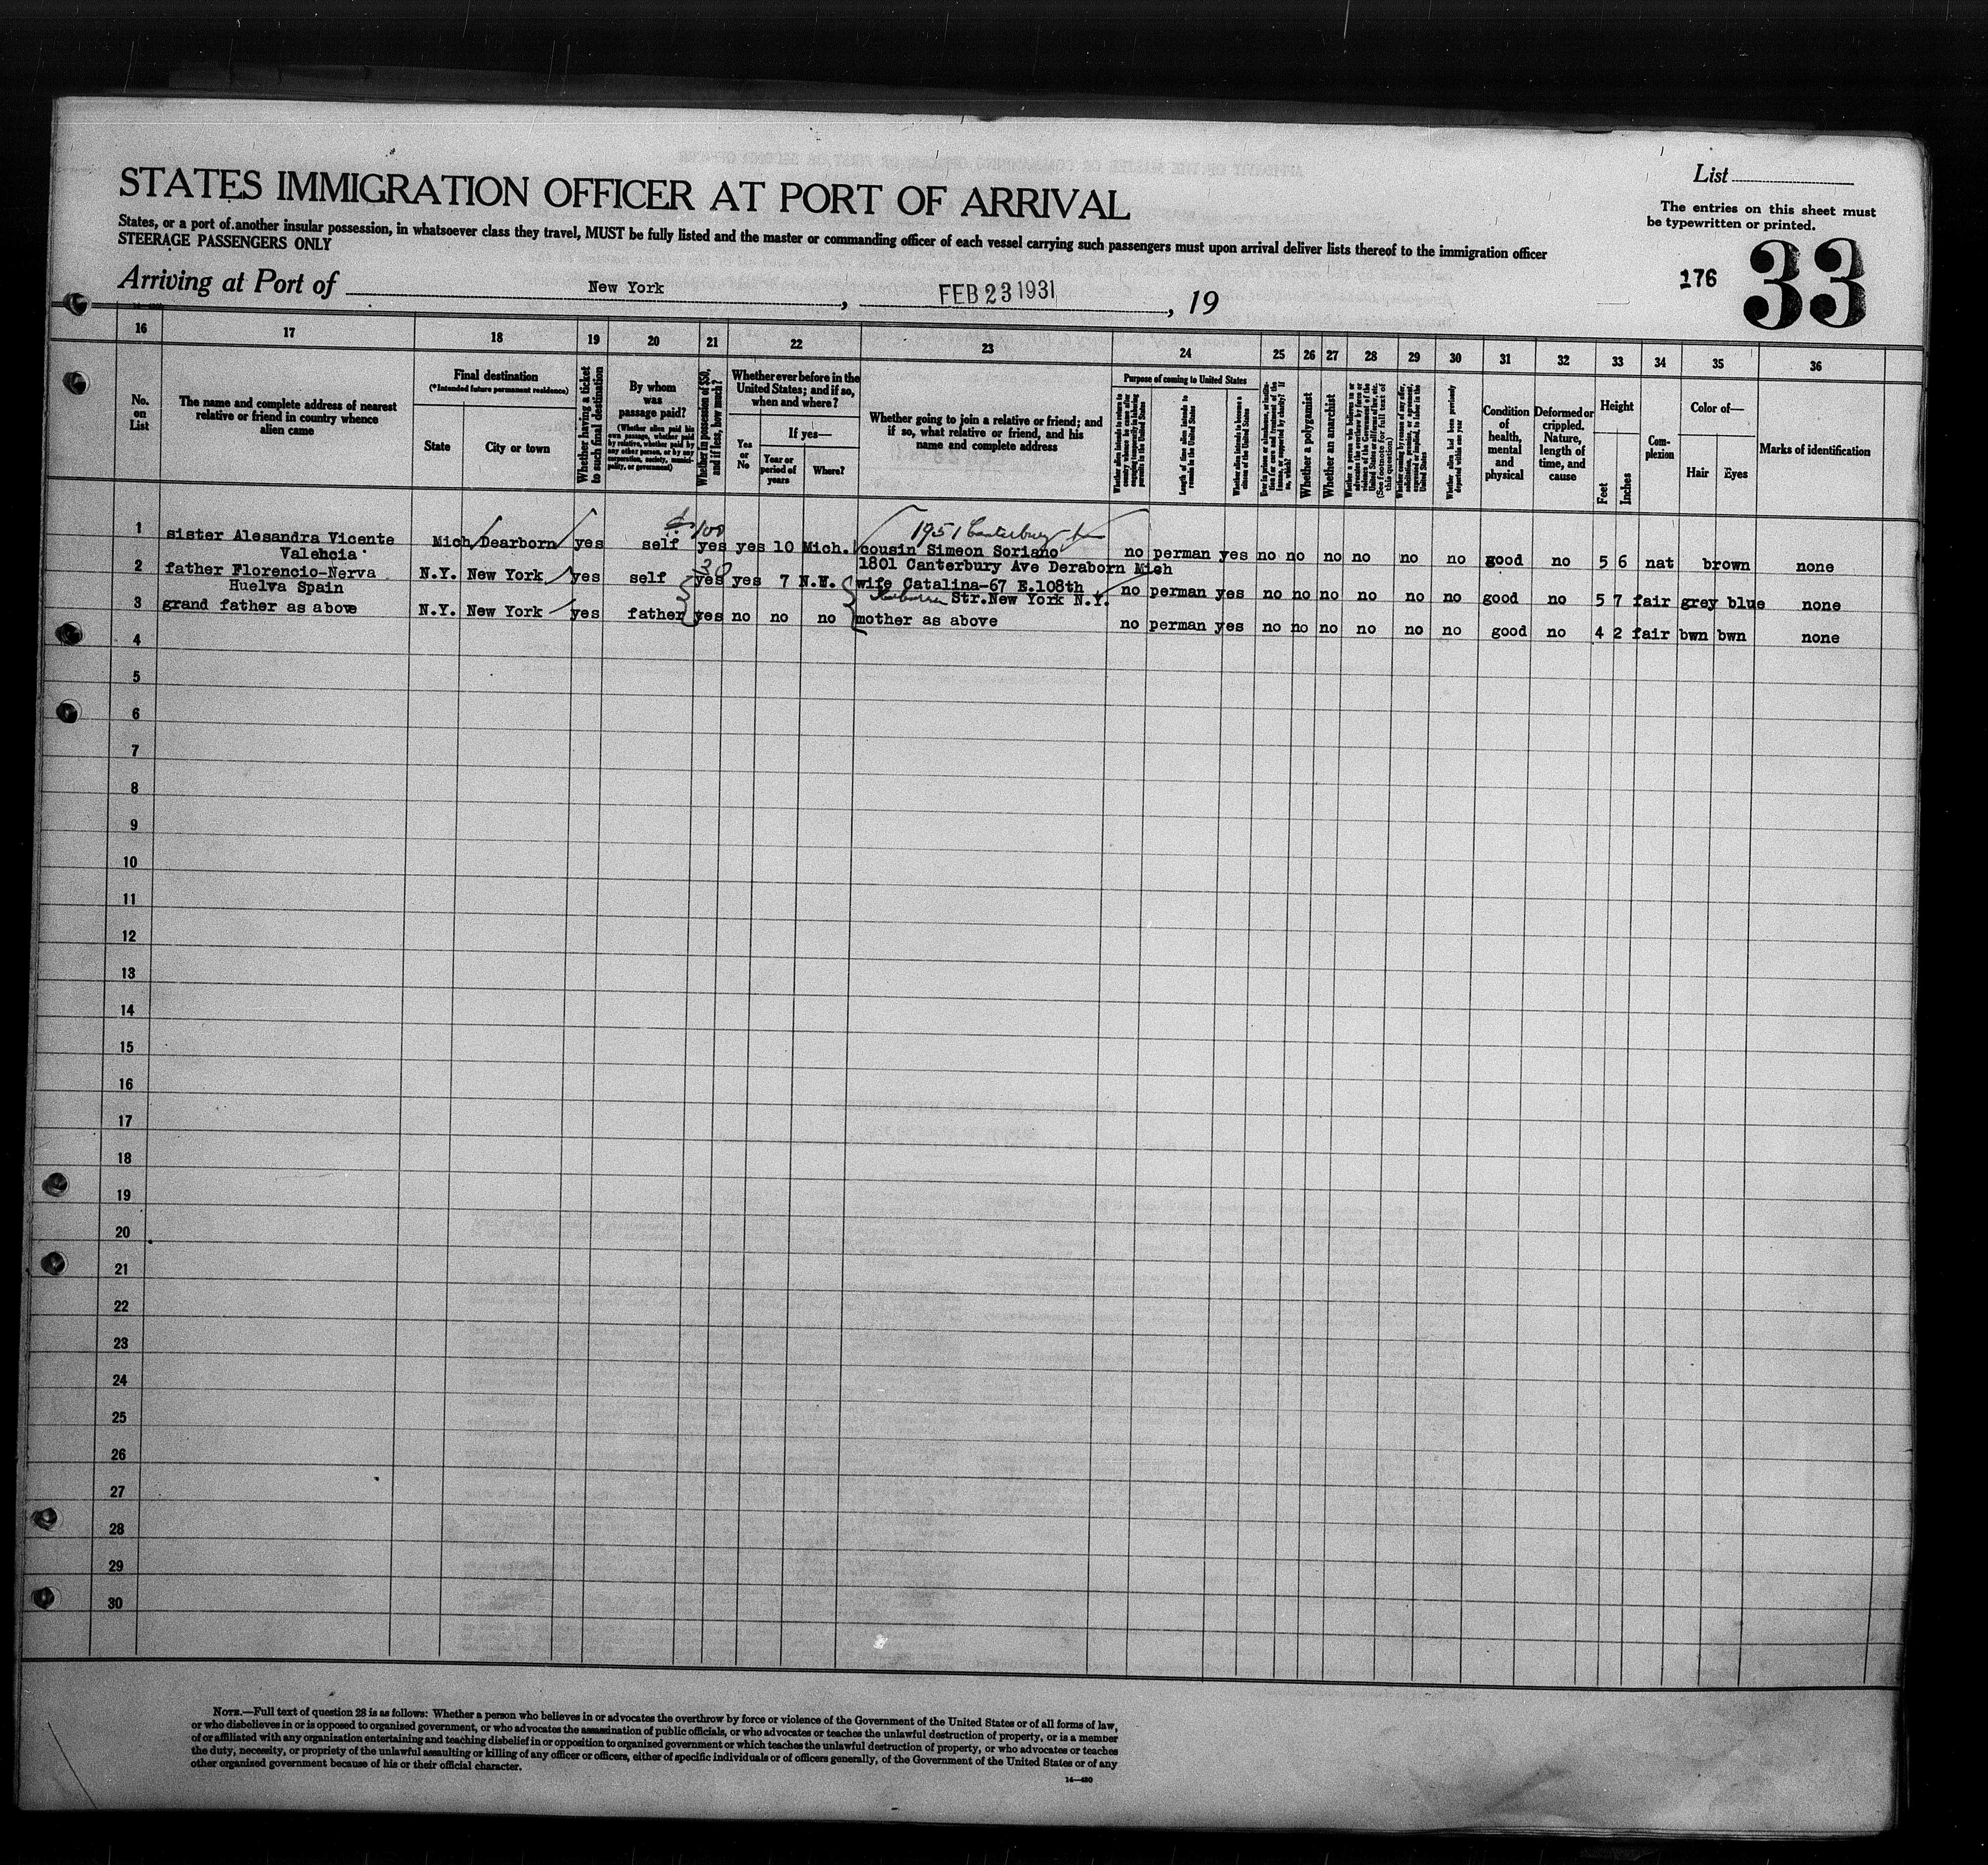 STATES IMMIGRATION OFFICER AT PORT OF ARRIVAL
States, or a port of another insular possession, in whatsoever class they travel, MUST be fully listed and the master or commanding officer of each vessel carrying such passengers must upon arrival deliver lists thereof to the immigration officer
STEERAGE PASSENGERS ONLY
List
The entries on this sheet must
be typewritten or printed.
176 33
Arriving at Port of New York, FEB 23 1931, 19
16 17 18 19 20 21 22 23 24 25 26 27 28 29 30 31 32 33 34 35 36
No. on List
The name and complete address of nearest
relative or friend in country whence
alien came
Final destination
(*Intended future permanent residence)
State
City or town
Whether having a ticket
to such final destination
By whom
was
passage paid?
(Whether alien paid his
own passage, whether paid
by relative, whether paid by
any other person, or by any
corporation, society, munici-
pality, or government)
Whether in possession of $50,
and if less, how much?
Whether ever before in the
United States; and if so,
when and where?
Yes
or
No
If yes—
Year or
period of
years
Where?
Whether going to join a relative or friend; and
if so, what relative or friend, and his
name and complete address
Purpose of coming to United States
Length of time alien intends to
remain in the United States
Whether alien intends to become a
citizen of the United States
Whether a polygamist
Whether an anarchist
(See footnote for full text of
this question)
Whether alien had been previously
deported within one year
Condition
of
health,
mental
and
physical
Deformed or
crippled.
Nature,
length of
time, and
cause
Height
Feet
Inches
Com-
plexion
Color of—
Hair
Eyes
Marks of identification
100 1951 Canterbury
1 sister Alesandra Vicente Mich Dearborn yes self yes yes 10 Mich. cousin Simeon Soriano no perman yes no no no no no no good no 5 6 nat brown none
Valencia 1801 Canterbury Ave Deraborn Mich
30
2 father Florencio-Nerva N.Y. New York yes self yes yes 7 N.Y. wife Catalina-67 E.108th no perman yes no no no no no no good no 5 7 fair grey blue none
Huelva Spain Str.New York N.Y.
3 grand father as above N.Y. New York yes father yes no no no mother as above no perman yes no no no no no no good no 4 2 fair bwn bwn none
4
5
6
7
8
9
10
11
12
13
14
15
16
17
18
19
20
21
22
23
24
25
26
27
28
29
30
NOTE.—Full text of question 28 is as follows: Whether a person who believes in or advocates the overthrow by force or violence of the Government of the United States or of all forms of law,
or who disbelieves in or is opposed to organized government, or who advocates the assassination of public officials, or who advocates or teaches the unlawful destruction of property, or is a member
of or affiliated with any organization entertaining and teaching disbelief in or opposition to organized government or which teaches the unlawful destruction of property, or who advocates or teaches
the duty, necessity, or propriety of the unlawful assaulting or killing of any officer or officers, either of specific individuals or of officers generally, of the Government of the United States or of any
other organized government because of his or their official character.
14—430